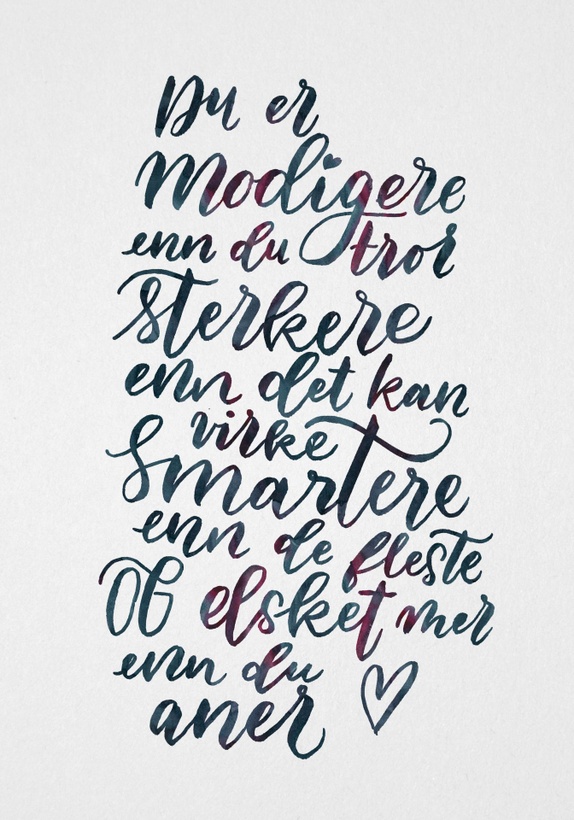 Du er
Modigere
enn du tror
sterkere
enn det kan
virke
Smartere
enn de fleste
OG elsket mer
enn du
aner